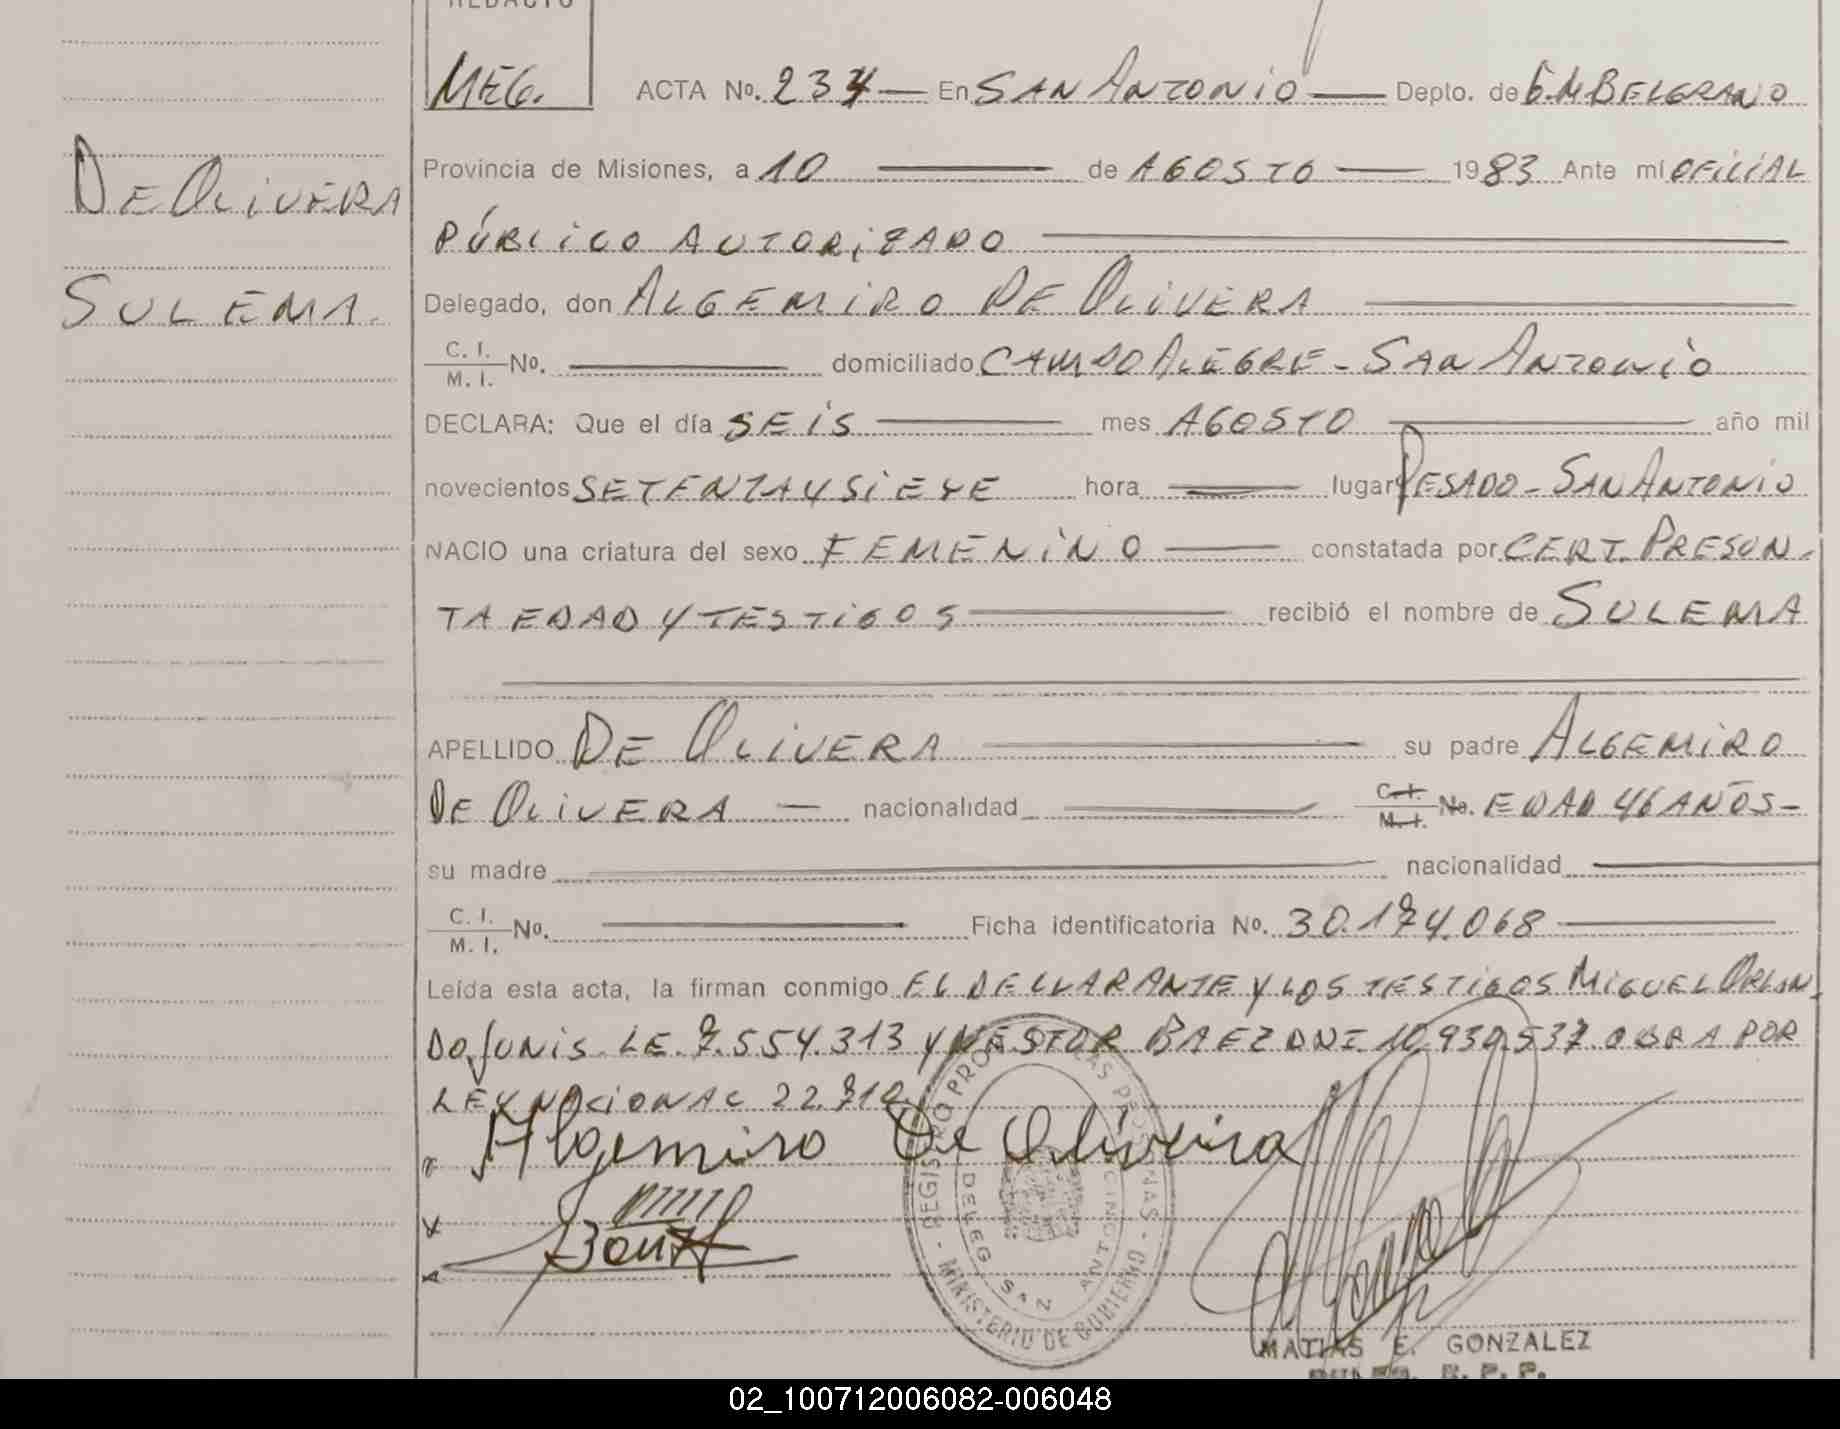 REDACTO
MEG.
ACTA No. 234 — En SAN ANTONIO — Depto. de G.M BELGRANO
DE OLIVERA
SULEMA.
Provincia de Misiones, a 10 — de AGOSTO — 1983 Ante mí OFICIAL
PÚBLICO AUTORIZADO —
Delegado, don ALGEMIRO DE OLIVERA —
C. I. / M. I. No. — domiciliado CAMPO ALEGRE - SAN ANTONIO
DECLARA: Que el día SEIS — mes AGOSTO — año mil
novecientos SETENTA Y SIETE hora — lugar PESADO - SAN ANTONIO
NACIO una criatura del sexo FEMENINO — constatada por CERT. PRESUN-
TA EDAD Y TESTIGOS — recibió el nombre de SULEMA
APELLIDO DE OLIVERA — su padre ALGEMIRO
DE OLIVERA — nacionalidad — C. I. / M. I. No. EDAD 46 AÑOS -
su madre — nacionalidad —
C. I. / M. I. No. — Ficha identificatoria No. 30.174.068 —
Leída esta acta, la firman conmigo EL DECLARANTE Y LOS TESTIGOS MIGUEL ORLAN-
DO JUNIS LE. 7.554.313 Y NESTOR BAEZ DNI. 10.930.537 OBRA POR
LEY NACIONAL 22.712
Algemiro De Oliveira
REGISTRO PROV. LAS PERSONAS - MINISTERIO DE GOBIERNO -
DELEG. SAN ANTONIO
MATIAS E. GONZALEZ
02_100712006082-006048